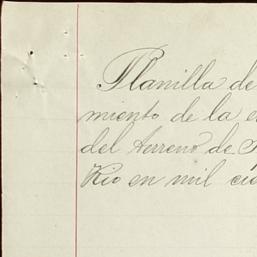 Planilla de
miento de la e
del terreno de
Rio en mil cie